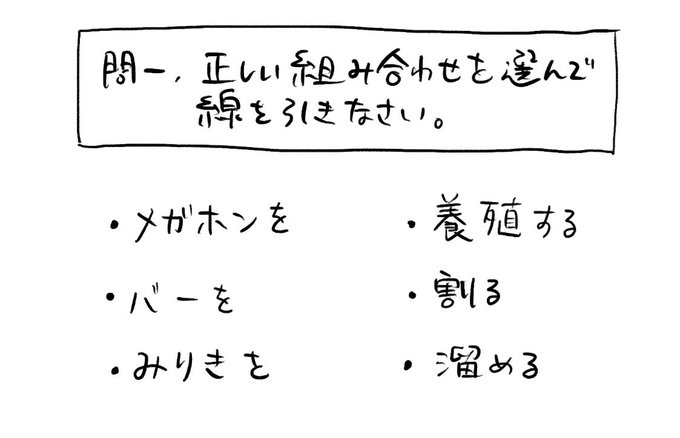 問一、正しい組み合わせを選んで
線を引きなさい。
・メガホンを ・養殖する
・バーを ・割る
・みりきを ・溜める